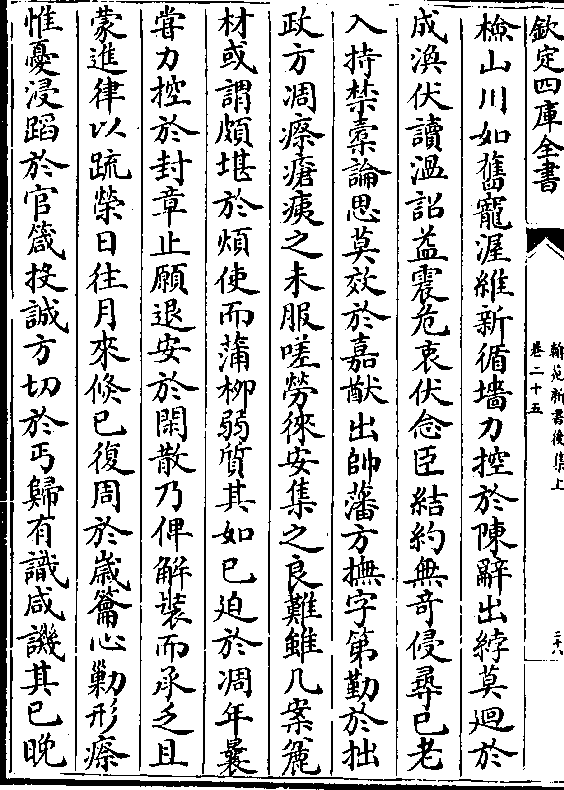 欽定四庫全書
翰苑新書後集上
卷二十五
三十八
檢山川如舊寵渥維新循墻力控於陳辭出綍莫迴於
成渙伏讀溫詔益震危衷伏念臣結約無奇侵尋已老
入持禁橐論思莫效於嘉猷出帥藩方撫字第勤於拙
政方凋瘵瘡痍之未服嗟勞徠安集之良難雖几案麄
材或謂頗堪於煩使而蒲栁弱質其如已迫於凋年曩
甞力控於封章止願退安於閑散乃俾解裝而承乏且
蒙進律以疏榮日往月來倐已復周於歲籥心勦形瘵
惟憂浸蹈於官箴投誠方切於丐歸有識咸譏其已晚